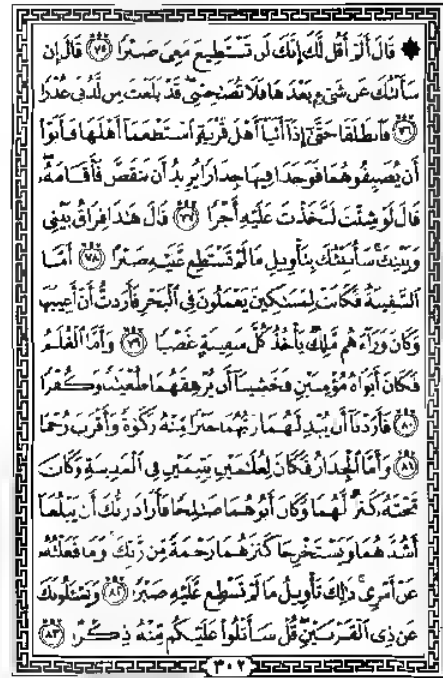 ۞ قَالَ أَلَمْ أَقُل لَّكَ إِنَّكَ لَن تَسْتَطِيعَ مَعِىَ صَبْرًا ﴿٧٥﴾ قَالَ إِن
سَأَلْتُكَ عَن شَىْءٍۭ بَعْدَهَا فَلَا تُصَـٰحِبْنِى ۖ قَدْ بَلَغْتَ مِن لَّدُنِّى عُذْرًا
﴿٧٦﴾ فَٱنطَلَقَا حَتَّىٰٓ إِذَآ أَتَيَآ أَهْلَ قَرْيَةٍ ٱسْتَطْعَمَآ أَهْلَهَا فَأَبَوْا۟
أَن يُضَيِّفُوهُمَا فَوَجَدَا فِيهَا جِدَارًا يُرِيدُ أَن يَنقَضَّ فَأَقَامَهُۥ ۖ
قَالَ لَوْ شِئْتَ لَتَّخَذْتَ عَلَيْهِ أَجْرًا ﴿٧٧﴾ قَالَ هَـٰذَا فِرَاقُ بَيْنِى
وَبَيْنِكَ ۚ سَأُنَبِّئُكَ بِتَأْوِيلِ مَا لَمْ تَسْتَطِع عَّلَيْهِ صَبْرًا ﴿٧٨﴾ أَمَّا
ٱلسَّفِينَةُ فَكَانَتْ لِمَسَـٰكِينَ يَعْمَلُونَ فِى ٱلْبَحْرِ فَأَرَدتُّ أَنْ أَعِيبَهَا
وَكَانَ وَرَآءَهُم مَّلِكٌ يَأْخُذُ كُلَّ سَفِينَةٍ غَصْبًا ﴿٧٩﴾ وَأَمَّا ٱلْغُلَـٰمُ
فَكَانَ أَبَوَاهُ مُؤْمِنَيْنِ فَخَشِينَآ أَن يُرْهِقَهُمَا طُغْيَـٰنًا وَكُفْرًا
﴿٨٠﴾ فَأَرَدْنَآ أَن يُبْدِلَهُمَا رَبُّهُمَا خَيْرًا مِّنْهُ زَكَوٰةً وَأَقْرَبَ رُحْمًا
﴿٨١﴾ وَأَمَّا ٱلْجِدَارُ فَكَانَ لِغُلَـٰمَيْنِ يَتِيمَيْنِ فِى ٱلْمَدِينَةِ وَكَانَ
تَحْتَهُۥ كَنزٌ لَّهُمَا وَكَانَ أَبُوهُمَا صَـٰلِحًا فَأَرَادَ رَبُّكَ أَن يَبْلُغَآ
أَشُدَّهُمَا وَيَسْتَخْرِجَا كَنزَهُمَا رَحْمَةً مِّن رَّبِّكَ ۚ وَمَا فَعَلْتُهُۥ
عَنْ أَمْرِى ۚ ذَٰلِكَ تَأْوِيلُ مَا لَمْ تَسْطِع عَّلَيْهِ صَبْرًا ﴿٨٢﴾ وَيَسْـَٔلُونَكَ
عَن ذِى ٱلْقَرْنَيْنِ ۖ قُلْ سَأَتْلُوا۟ عَلَيْكُم مِّنْهُ ذِكْرًا ﴿٨٣﴾
٣٠٢